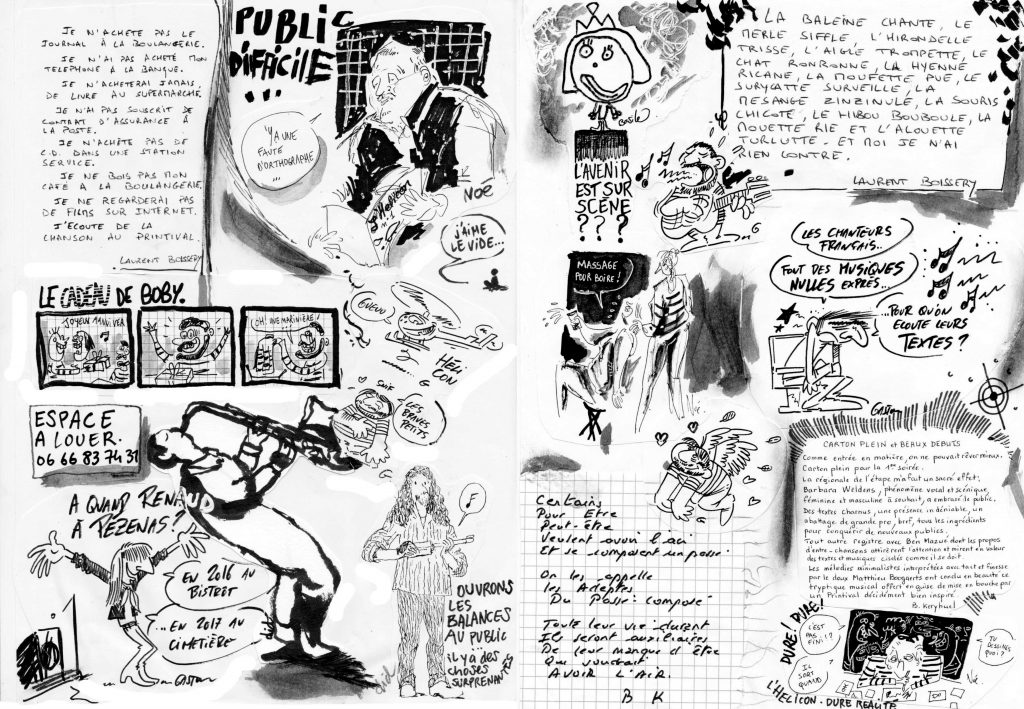 JE N'ACHÈTE PAS LE
JOURNAL À LA BOULANGERIE.
JE N'AI PAS ACHETÉ MON
TELEPHONE À LA BANQUE.
JE N'ACHETERAI JAMAIS,
DE LIVRE AU SUPERMARCHÉ.
JE N'AI PAS SOUSCRIT DE
CONTRAT D'ASSURANCE À
LA POSTE.
JE N'ACHÈTE PAS DE
C.D. DANS UNE STATION
SERVICE.
JE NE BOIS PAS MON
CAFÉ À LA BOULANGERIE.
JE NE REGARDERAI PAS
DE FILMS SUR INTERNET.
J'ÉCOUTE DE LA
CHANSON AU PRINTIVAL.
LAURENT BOISSERY
PUBLIC
DIFFICILE
...
Y'A UNE
FAUTE
D'ORTHOGRAPHE
NOÉ
J'AIME
LE VIDE...
LE CADEAU DE BOBY.
JOYEUX ANNIVER
OH! UNE MARINIÈRE!
GUEUU
HÉLI
CON
G
ESPACE
A LOUER.
06 66 83 74 31
SNIF
LES
BRAVES
PETITS
A QUAND RENAUD
À PÉZENAS?
EN 2016 AU
BISTROT
...EN 2017 AU
CIMETIÈRE
Gaston
OUVRONS
LES
BALANCES
AU PUBLIC
IL Y A DES
CHOSES
SURPRENAN
Basile
L'AVENIR
EST SUR
SCÈNE
???
G
LA BALEINE CHANTE, LE
MERLE SIFFLE, L'HIRONDELLE
TRISSE, L'AIGLE TROMPETTE, LE
CHAT RONRONNE, LA HYENNE
RICANE, LA MOUFETTE PUE, LE
SURYCATTE SURVEILLE, LA
MESANGE ZINZINULE, LA SOURIS
CHICOTE, LE HIBOU BOUBOULE, LA
MOUETTE RIE ET L'ALOUETTE
TURLUTTE. ET MOI JE N'AI
RIEN CONTRE.
LAURENT BOISSERY
MASSAGE
POUR BOIRE!
LES CHANTEURS
FRANÇAIS...
FONT DES MUSIQUES
NULLES EXPRÈS...
...POUR QU'ON
ECOUTE LEURS
TEXTES?
Gaston
Certains
Pour Etre
Peut-être
Veulent avoir l'air
Et se composent un passé.
On les appelle
Les Adeptes
Du Passé-composé
Toute leur vie durant
Ils seront auxiliaires
De leur manque d'Être
Qui voudrait
AVOIR L'AIR.
B K
CARTON PLEIN et BEAUX DEBUTS
Comme entrée en matière, on ne pouvait rêver mieux.
Carton plein pour la 1ère soirée.
La régionale de l'étape m'a fait un sacré effet.
Barbara Weldens, phénomène vocal et scénique,
féminine et masculine à souhait, a embrasé le public.
Des textes charnus, une présence indéniable, un
abattage de grande pro, bref, tous les ingrédients
pour conquérir de nouveaux publics.
Tout autre registre avec Ben Mazué dont les propos
d'entre-chansons attirèrent l'attention et mirent en valeur
des textes et musiques ciselés comme il se doit.
Les mélodies minimalistes interprétées avec tact et finesse
par le doux Matthieu Boogaerts ont conclu en beauté ce
tryptique musical offert en guise de mise en bouche par
un Printival décidément bien inspiré
B. Keryhuel
DURE! DURE!
C'EST
PAS
FINI!?
IL
SORT
QUAND
TU
DESSINES
QUOI?
Noé
L'HELICON. DURE REALITÉ